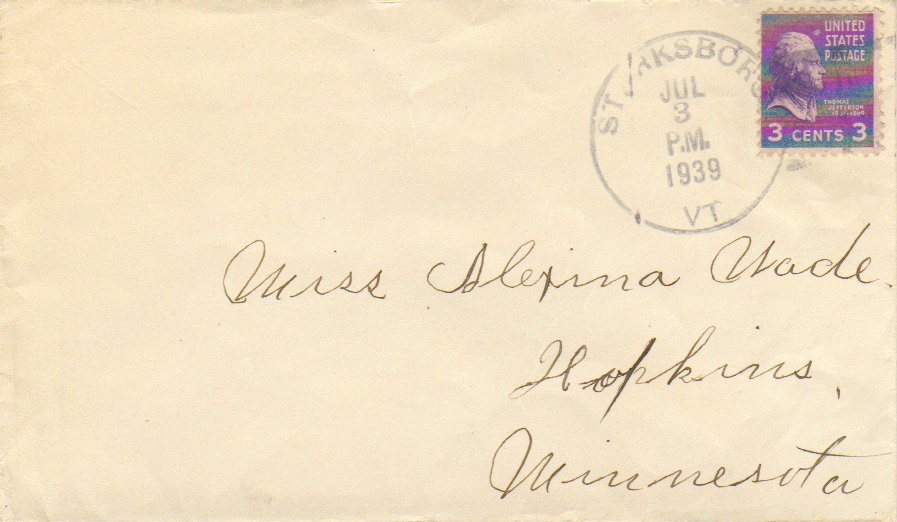 UNITED
STATES
POSTAGE
THOMAS
JEFFERSON
1801-1809
3 CENTS 3
STARKSBORO
JUL
3
P.M.
1939
VT
Miss Alexina Wade.
Hopkins,
Minnesota